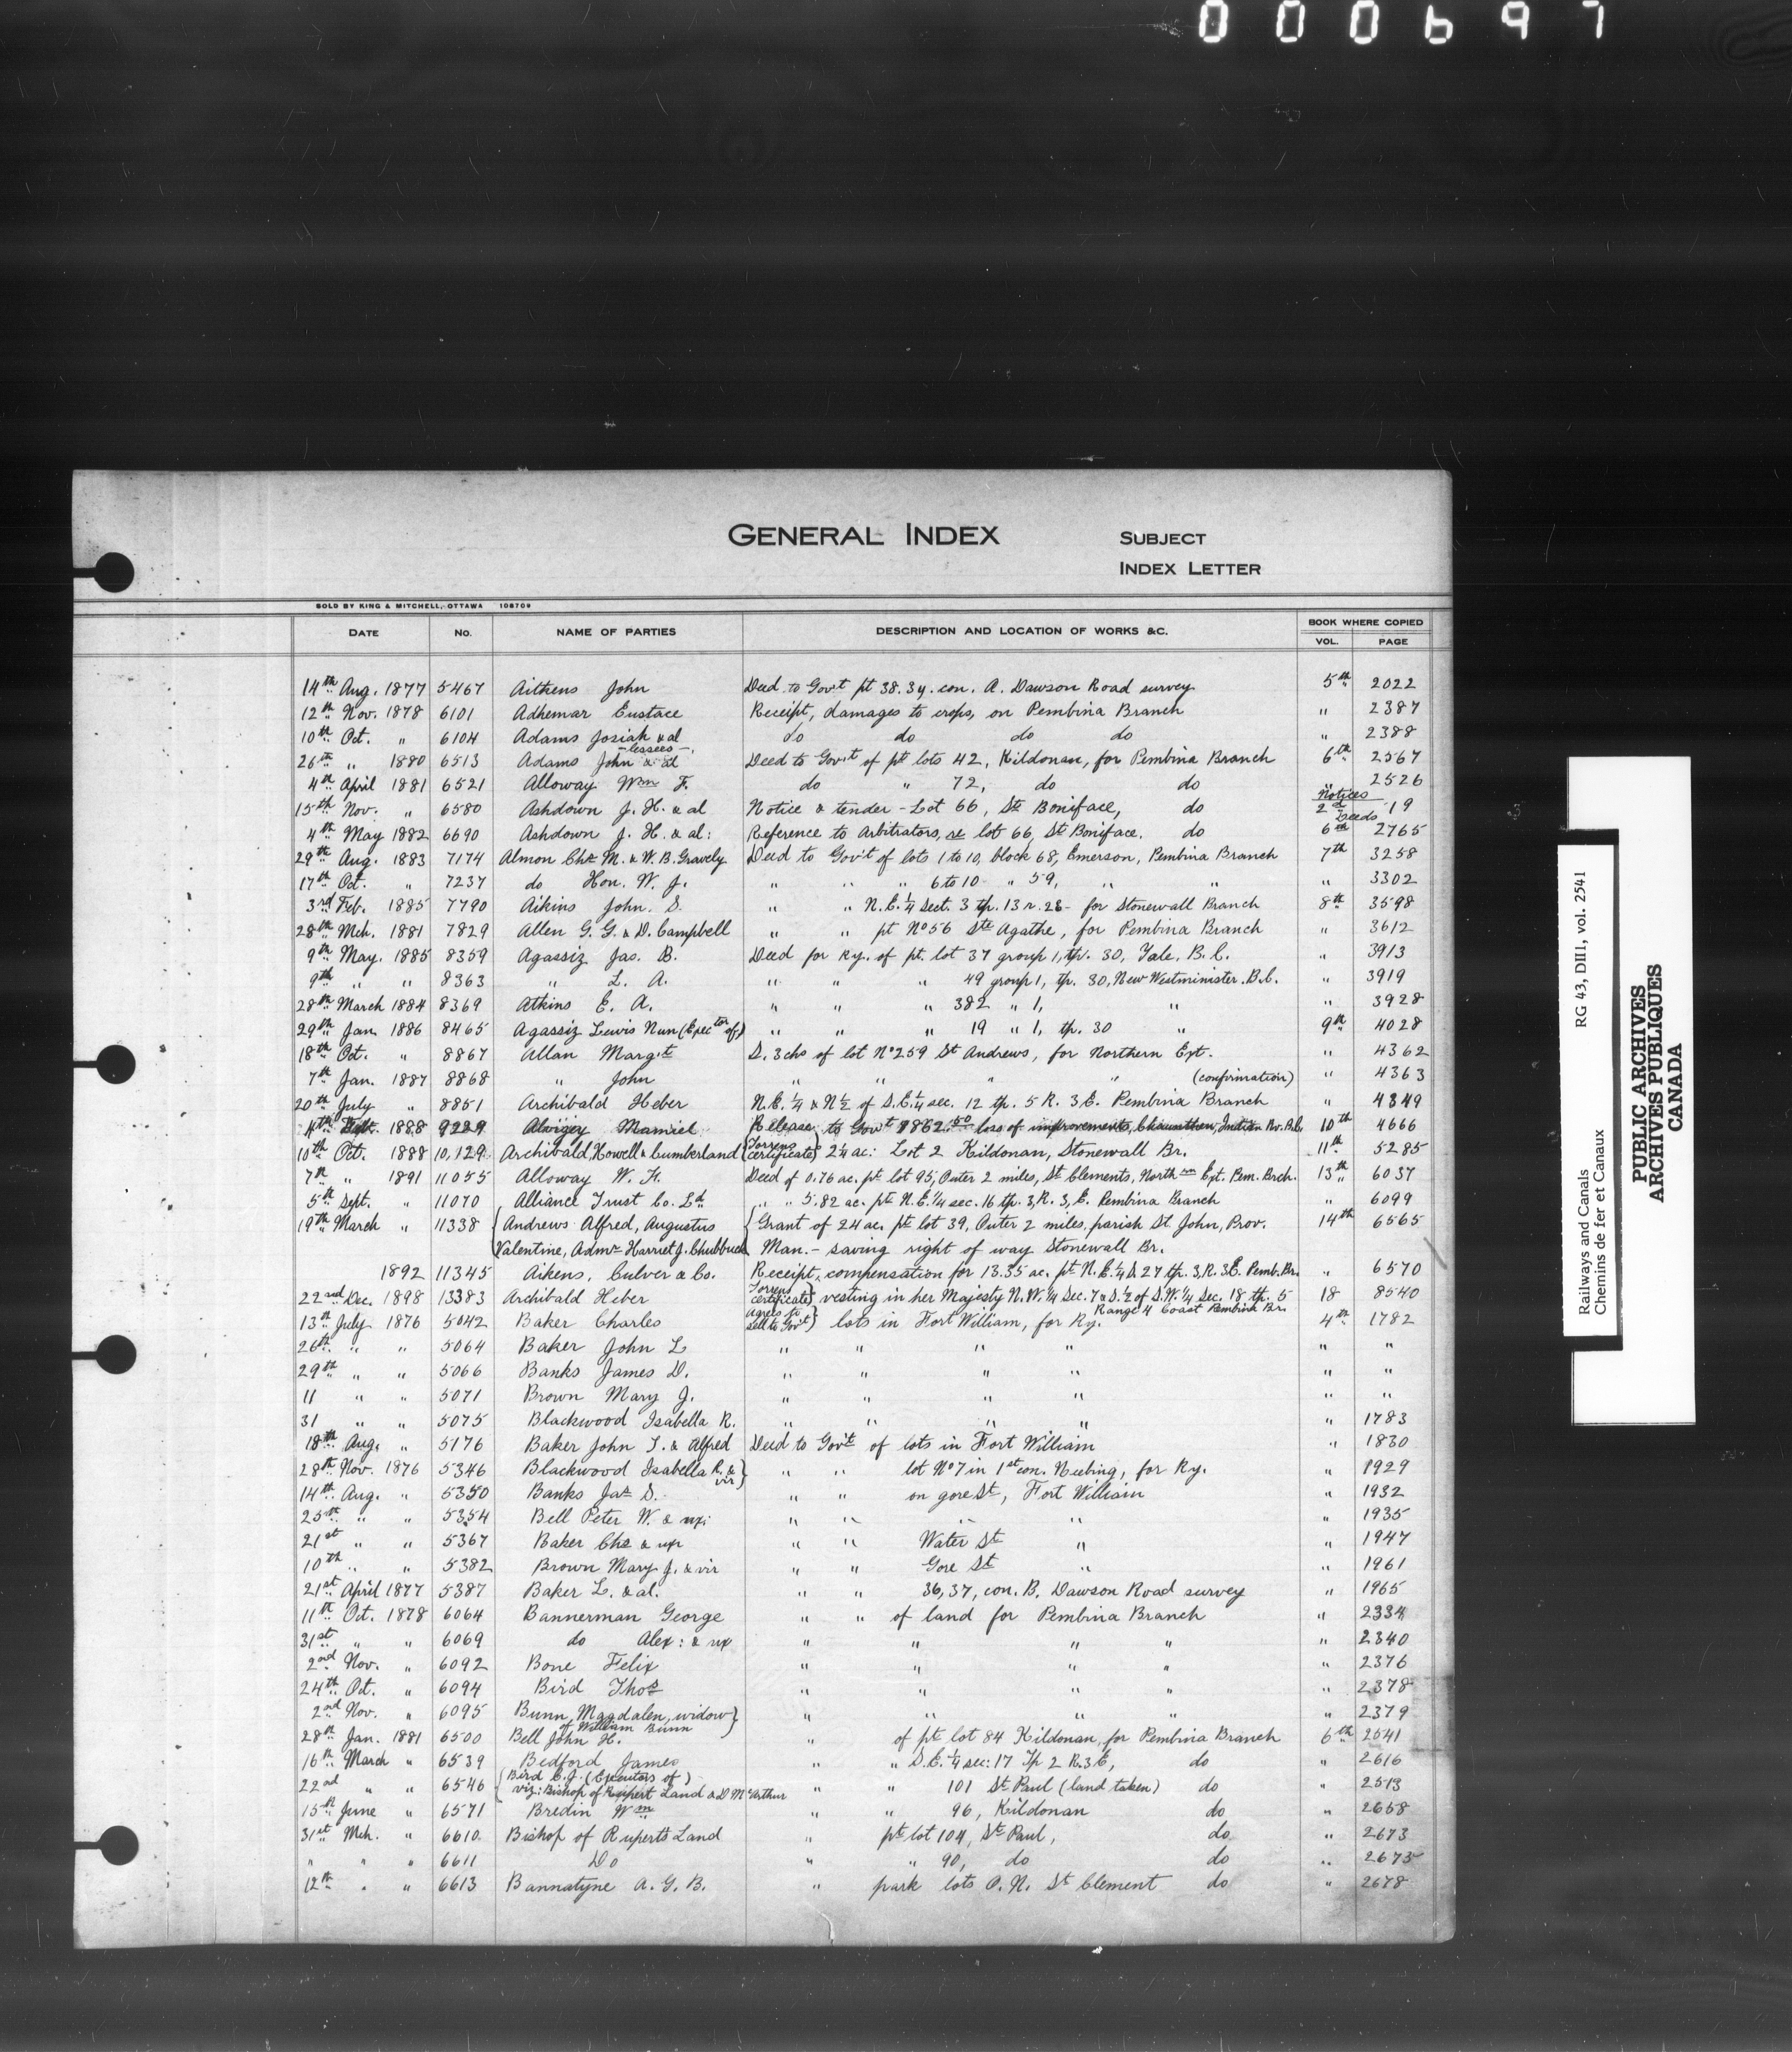 000697
GENERAL INDEX
SUBJECT
INDEX LETTER
SOLD BY KING & MITCHELL, OTTAWA 108709
DATE No. NAME OF PARTIES DESCRIPTION AND LOCATION OF WORKS &C. BOOK WHERE COPIED
VOL. PAGE
14th Aug. 1877 5467 Aitkens John Deed to Gov't pt 38.39. con. A. Dawson Road survey 5th 2022
12th Nov. 1878 6101 Adhemar Eustace Receipt, damages to crops, on Pembina Branch " 2387
10th Oct. " 6104 Adams Josiah & al do do do do " 2388
26th " 1880 6513 Adams John & al -lessees-. Deed to Gov't of pt lots 42, Kildonan, for Pembina Branch 6th 2567
4th April 1881 6521 Alloway Wm F. do " 72, do do " 2526
15th Nov. " 6580 Ashdown J. H. & al Notice & tender - Lot 66, St Boniface, do Notices 2d 19
4th May 1882 6690 Ashdown J. H. & al: Reference to Arbitrators, re lot 66, St Boniface. do Deeds 6th 2765
29th Aug. 1883 7174 Almon Chs M. & W. B. Gravely Deed to Gov't of lots 1 to 10, block 68, Emerson, Pembina Branch 7th 3258
17th Oct. " 7237 do Hon. W. J. " " " 6 to 10 " 59, " " " 3302
3rd Feb. 1885 7790 Aikins John. S. " " N.E. 1/4 Sect. 3 tp. 13 r. 2E - for Stonewall Branch 8th 3598
28th Mch. 1881 7829 Allen G. G. & D. Campbell " " pt No 56 Ste Agathe, for Pembina Branch " 3612
9th May. 1885 8359 Agassiz Jas. B. Deed for Ry. of pt. lot 37 group 1, tp. 30, Yale, B.C. " 3913
9th " " 8363 " L. A. " " " 49 group 1, tp. 30, New Westminister. B.C. " 3919
28th March 1884 8369 Atkins E. A. " " " 382 " 1, " " 3928
29th Jan. 1886 8465 Agassiz Lewis Nun (Exector of) " " " 19 " 1, tp. 30 " 9th 4028
18th Oct. " 8867 Allan Margt S. 3 chs of lot No 259 St Andrews, for Northern Ext. " 4362
7th Jan. 1887 8868 " John " " " " (confirmation) " 4363
20th July " 8851 Archibald Heber N.E. 1/4 & N 1/2 of S.E. 1/4 sec. 12 tp. 5 R. 3 E. Pembina Branch " 4349
4th Sept. 1888 9229 Release to Gov't loss of improvements, Indian Rv. B.C. 10th 4666
10th Oct. 1888 10,129 Archibald, Howell & Cumberland (Torrens certificate) 2 1/4 ac: Lot 2 Kildonan, Stonewall Br. 11th 5285
7th " 1891 11055 Alloway W. F. Deed of 0.76 ac. pt lot 95, Outer 2 miles, St Clements, North ern Ext. Pem. Brch. 13th 6037
5th Sept. " 11070 Alliance Trust Co. Ld " " 5.82 ac. pt N.E. 1/4 sec. 16 tp. 3, R. 3, E. Pembina Branch " 6099
19th March " 11338 Andrews Alfred, Augustus Grant of 24 ac. pt lot 39, Outer 2 miles, parish St. John, Prov. 14th 6565
Valentine, Admr Harriet J. Chubbuck Man. - saving right of way Stonewall Br.
1892 11345 Aikens, Culver & Co. Receipt, compensation for 13.35 ac. pt N.E. 1/4 S. 27 tp. 3, R. 3 E. Pemb. Br. " 6570
22nd Dec. 1898 13383 Archibald Heber Torrens certificate) vesting in her Majesty N.W. 1/4 Sec. 7 & S. 1/2 of S.W. 1/4 Sec. 18 tp. 5 18 8540
Range 4 East Pembina Br.
13th July 1876 5042 Baker Charles agrees to sell to Gov't) lots in Fort William, for Ry. 4th 1782
26th " " 5064 Baker John L " " " " " "
29th " " 5066 Banks James D. " " " " " "
11 " " 5071 Brown Mary J. " " " " " "
31 " " 5075 Blackwood Isabella R. " " " " " 1783
18th Aug. " 5176 Baker John L. & Alfred Deed to Gov't of lots in Fort William " 1830
28th Nov. 1876 5346 Blackwood Isabella R. & vir) " " lot No 7 in 1st con. Neebing, for Ry. " 1929
14th Aug. " 5350 Banks Jas S. " " on gore St, Fort William " 1932
25th " " 5354 Bell Peter W. & ux: " " " " " 1935
21st " " 5367 Baker Chs & ux " " Water St " " 1947
10th " " 5382 Brown Mary J. & vir " " Gore St " " 1961
21st April 1877 5387 Baker L. & al. " " 36, 37, con. B. Dawson Road survey " 1965
11th Oct. 1878 6064 Bannerman George " " of land for Pembina Branch " 2334
31st " " 6069 do Alex: & ux " " " " " 2340
2nd Nov. " 6092 Bone Felix " " " " " 2376
24th Oct. " 6094 Bird Thos " " " " " 2378
2nd Nov. " 6095 Bunn, Magdalen, widow of William Bunn } " " " " " 2379
28th Jan. 1881 6500 Bell John H. " of pt lot 84 Kildonan, for Pembina Branch 6th 2541
16th March " 6539 Bedford James " " S.E. 1/4 sec: 17 Tp 2 R. 3 E, do " 2616
22nd " " 6546 (Bird C. J. (Executors of) viz: Bishop of Rupert Land & D McArthur " " 101 St Paul (land taken) do " 2513
15th June " 6571 Bredin Wm " " 96, Kildonan do " 2658
31st Mch. " 6610 Bishop of Ruperts Land " pt lot 104, St Paul, do " 2673
" " " 6611 Do " " 90, do do " 2675
12th " " 6613 Bannatyne A. G. B. " park lots O. N. St Clement do " 2678
RG 43, DIII, vol. 2541
Railways and Canals
Chemins de fer et Canaux
PUBLIC ARCHIVES
ARCHIVES PUBLIQUES
CANADA